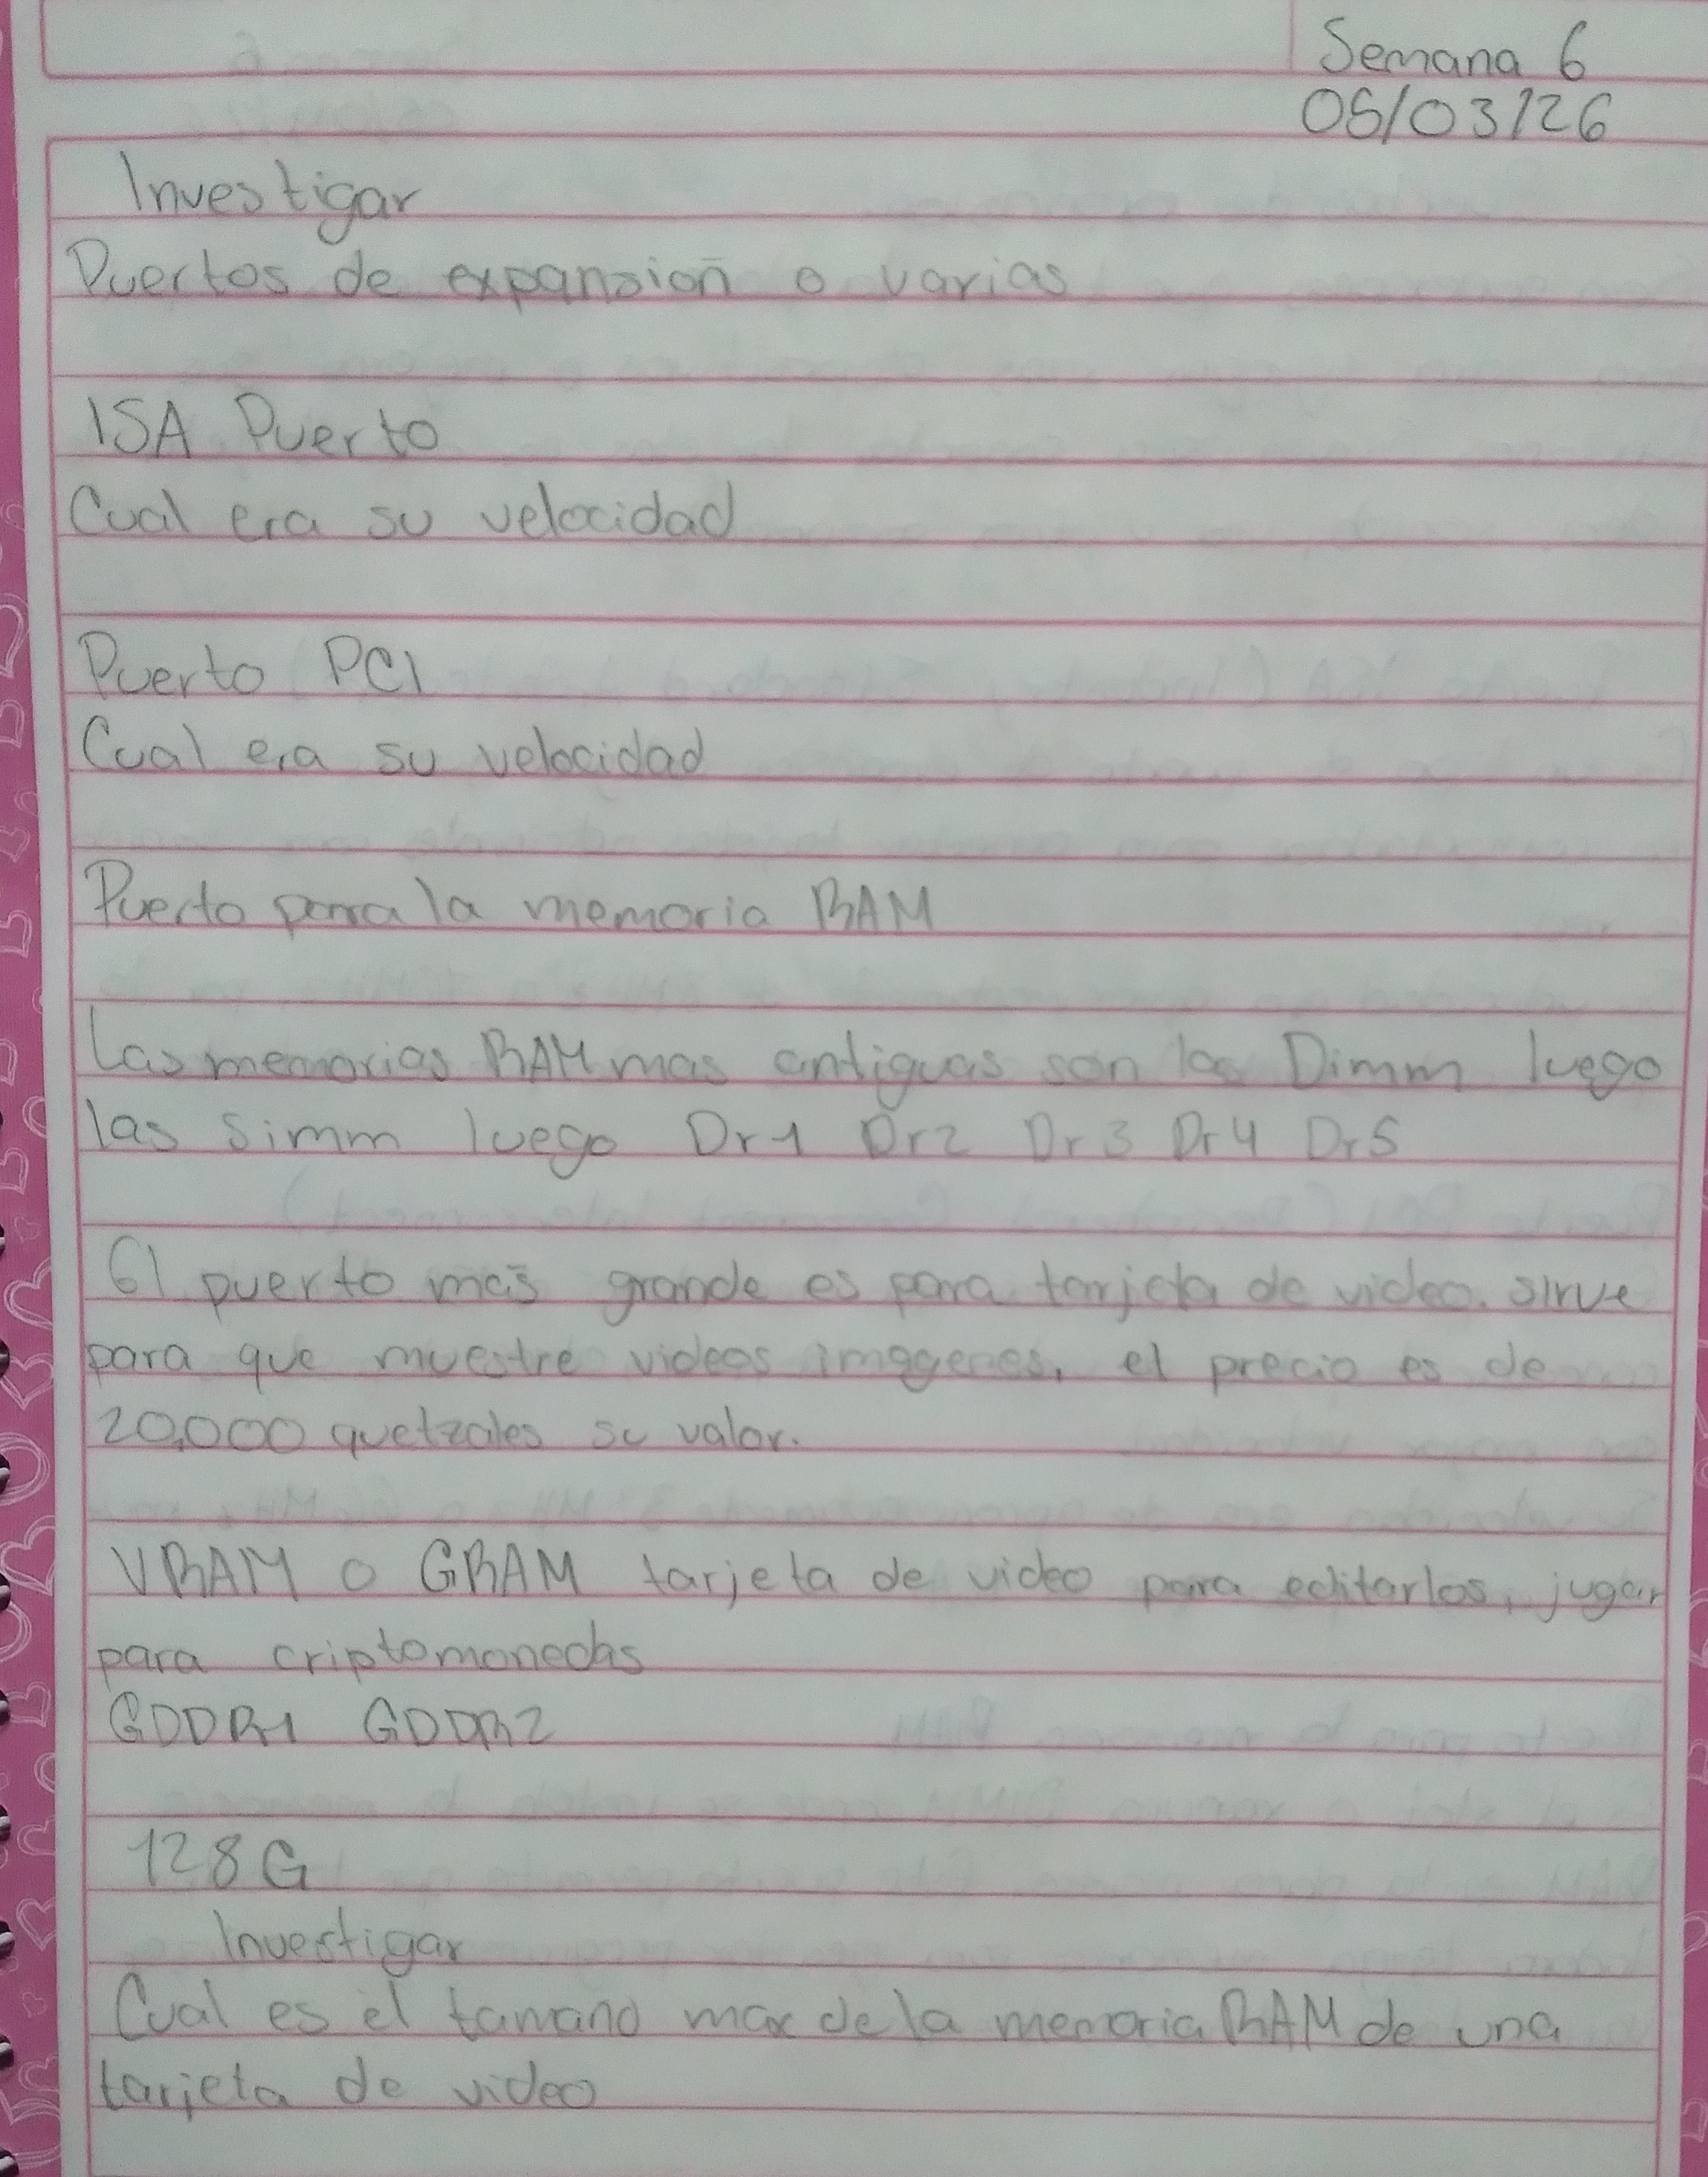 Semana 6
05/03/26
Investigar
Puertos de expansión o varias
ISA Puerto
Cual era su velocidad
Puerto PCI
Cual era su velocidad
Puerto para la memoria RAM
Las memorias RAM mas antiguas son las Dimm luego
las simm luego Dr1 Dr2 Dr3 Dr4 Dr5
El puerto más grande es para tarjeta de video. sirve
para que muestre videos imagenes, el precio es de
20,000 quetzales su valor.
VRAM o GRAM tarjeta de video para editarlos, jugar
para criptomonedas
GDDR1 GDDR2
128G
Investigar
Cual es el tamano max de la memoria RAM de una
tarjeta de video